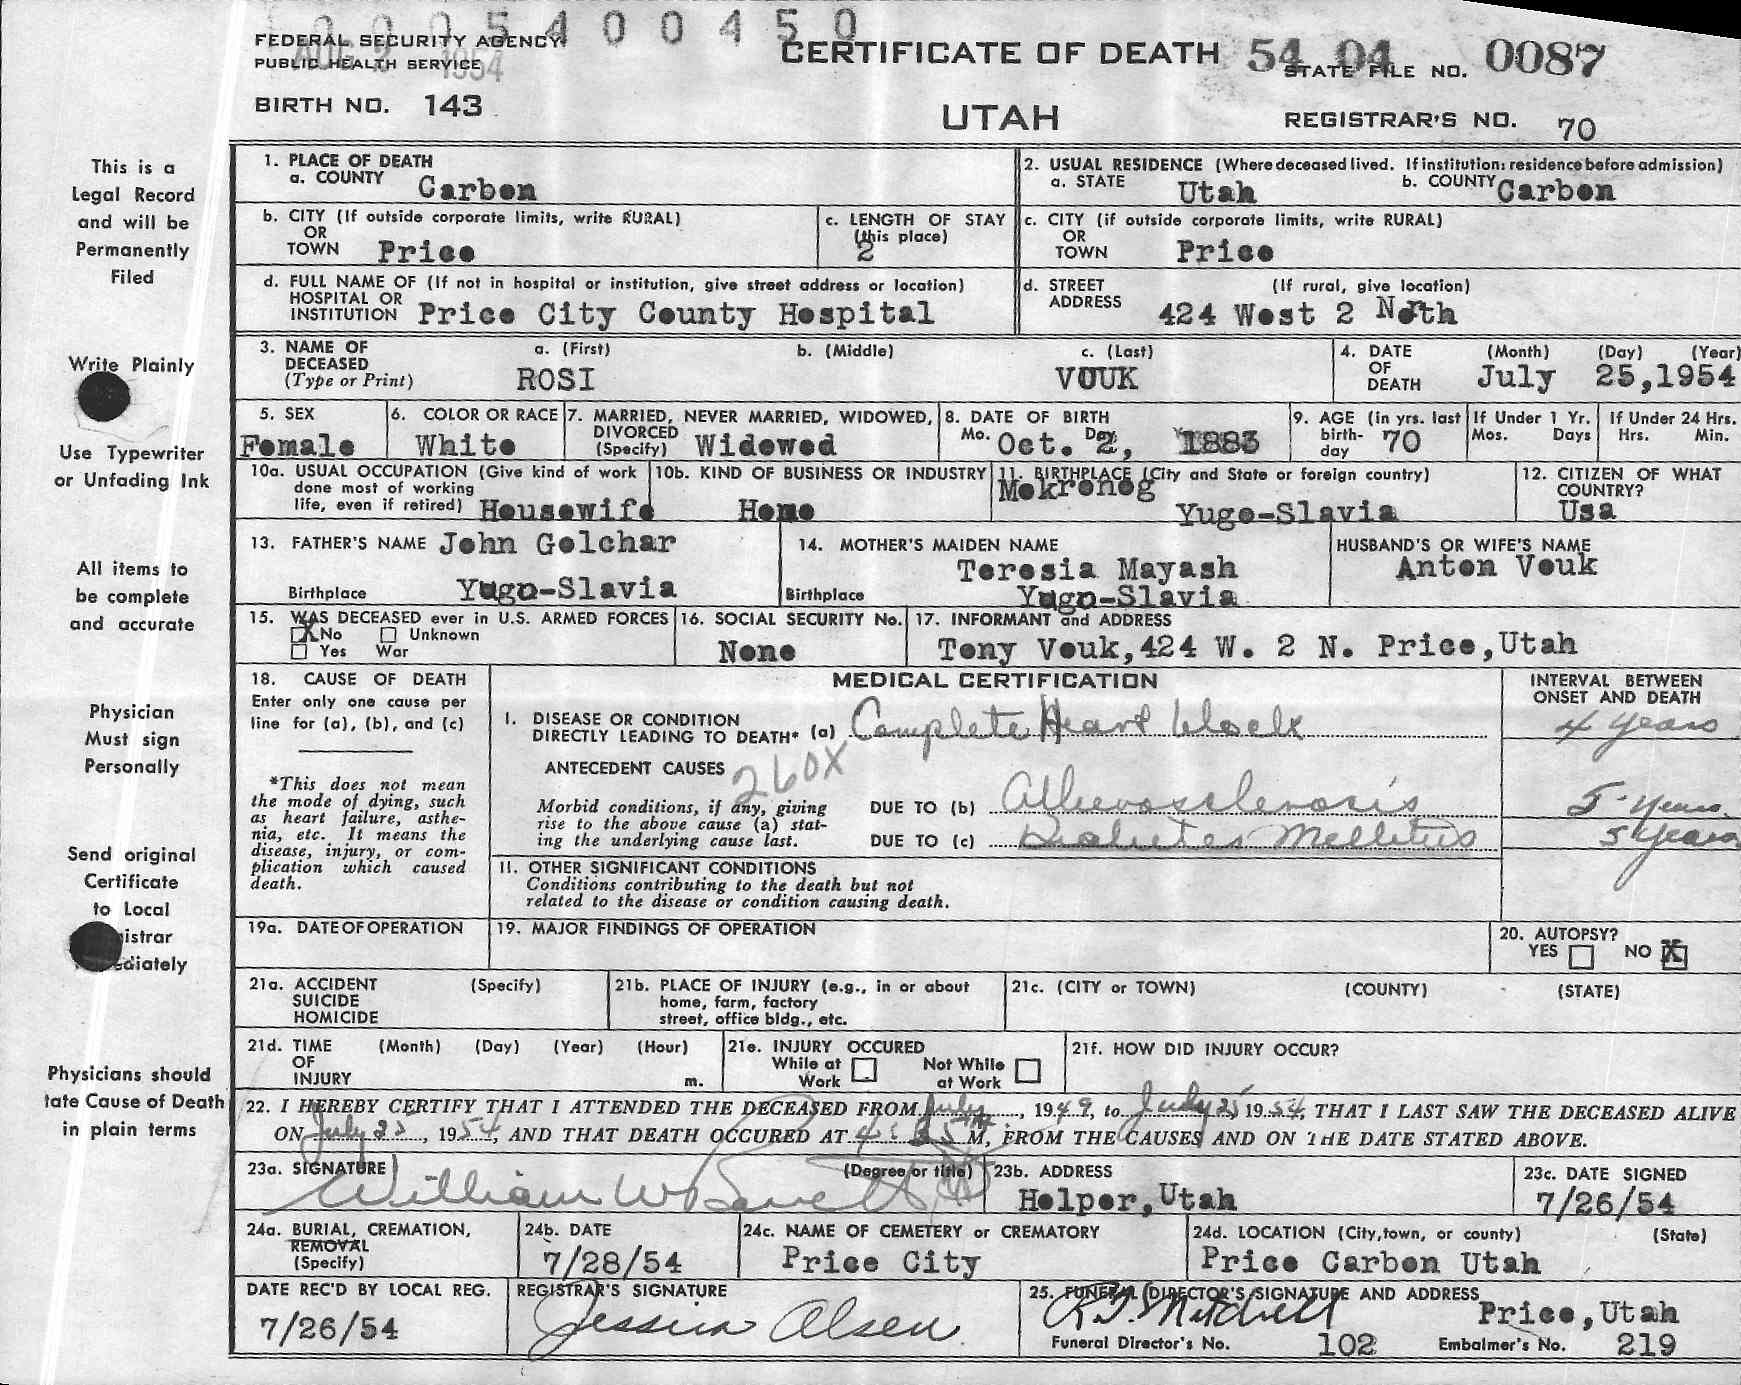 0 0 0 5 4 0 0 4 5 0
FEDERAL SECURITY AGENCY
PUBLIC HEALTH SERVICE
AUG 2 1954
CERTIFICATE OF DEATH
54 04 0087
STATE FILE NO.
BIRTH NO. 143
UTAH
REGISTRAR'S NO. 70
This is a
Legal Record
and will be
Permanently
Filed
Write Plainly
Use Typewriter
or Unfading Ink
All items to
be complete
and accurate
Physician
Must sign
Personally
Send original
Certificate
to Local
istrar
ediately
Physicians should
tate Cause of Death
in plain terms
1. PLACE OF DEATH
a. COUNTY Carbon
2. USUAL RESIDENCE (Where deceased lived. If institution: residence before admission)
a. STATE Utah b. COUNTY Carbon
b. CITY (If outside corporate limits, write RURAL)
OR
TOWN Price
c. LENGTH OF STAY
(this place)
2
c. CITY (if outside corporate limits, write RURAL)
OR
TOWN Price
d. FULL NAME OF (If not in hospital or institution, give street address or location)
HOSPITAL OR
INSTITUTION Price City County Hospital
d. STREET (If rural, give location)
ADDRESS 424 West 2 Noth
3. NAME OF
DECEASED
(Type or Print)
a. (First) b. (Middle) c. (Last)
ROSI VOUK
4. DATE (Month) (Day) (Year)
OF
DEATH July 25,1954
5. SEX
Female
6. COLOR OR RACE
White
7. MARRIED, NEVER MARRIED, WIDOWED,
DIVORCED
(Specify) Widowed
8. DATE OF BIRTH
Mo. Oct. Day 2, 1883
9. AGE (in yrs. last
birth-
day 70
If Under 1 Yr.
Mos. Days
If Under 24 Hrs.
Hrs. Min.
10a. USUAL OCCUPATION (Give kind of work
done most of working
life, even if retired) Housewife
10b. KIND OF BUSINESS OR INDUSTRY
Home
11. BIRTHPLACE (City and State or foreign country)
Mokronog
Yugo-Slavia
12. CITIZEN OF WHAT
COUNTRY?
Usa
13. FATHER'S NAME John Golchar
Birthplace Yugo-Slavia
14. MOTHER'S MAIDEN NAME
Teresia Mayash
Birthplace Yugo-Slavia
HUSBAND'S OR WIFE'S NAME
Anton Vouk
15. WAS DECEASED ever in U.S. ARMED FORCES
X No Unknown
Yes War
16. SOCIAL SECURITY No.
None
17. INFORMANT and ADDRESS
Tony Vouk,424 W. 2 N. Price,Utah
18. CAUSE OF DEATH
Enter only one cause per
line for (a), (b), and (c)
*This does not mean
the mode of dying, such
as heart failure, asthe-
nia, etc. It means the
disease, injury, or com-
plication which caused
death.
MEDICAL CERTIFICATION
INTERVAL BETWEEN
ONSET AND DEATH
I. DISEASE OR CONDITION
DIRECTLY LEADING TO DEATH* (a) Complete Heart block 4 years
ANTECEDENT CAUSES
260X
Morbid conditions, if any, giving
rise to the above cause (a) stat-
ing the underlying cause last.
DUE TO (b) Atherosclerosis 5 years
DUE TO (c) Diabetes Mellitus 5 years
II. OTHER SIGNIFICANT CONDITIONS
Conditions contributing to the death but not
related to the disease or condition causing death.
19a. DATE OF OPERATION
19. MAJOR FINDINGS OF OPERATION
20. AUTOPSY?
YES NO X
21a. ACCIDENT (Specify)
SUICIDE
HOMICIDE
21b. PLACE OF INJURY (e.g., in or about
home, farm, factory
street, office bldg., etc.
21c. (CITY or TOWN) (COUNTY) (STATE)
21d. TIME (Month) (Day) (Year) (Hour)
OF
INJURY m.
21e. INJURY OCCURED
While at Not While
Work at Work
21f. HOW DID INJURY OCCUR?
22. I HEREBY CERTIFY THAT I ATTENDED THE DECEASED FROM July, 1949, to July 25 1954, THAT I LAST SAW THE DECEASED ALIVE
ON July 25, 1954, AND THAT DEATH OCCURED AT M, FROM THE CAUSES AND ON THE DATE STATED ABOVE.
23a. SIGNATURE (Degree or title)
William W
23b. ADDRESS
Helper,Utah
23c. DATE SIGNED
7/26/54
24a. BURIAL, CREMATION,
REMOVAL
(Specify)
24b. DATE
7/28/54
24c. NAME OF CEMETERY or CREMATORY
Price City
24d. LOCATION (City,town, or county) (State)
Price Carbon Utah
DATE REC'D BY LOCAL REG.
7/26/54
REGISTRAR'S SIGNATURE
Jessica Olsen
25. FUNERAL DIRECTOR'S SIGNATURE AND ADDRESS
Mitchell Price,Utah
Funeral Director's No. 102 Embalmer's No. 219